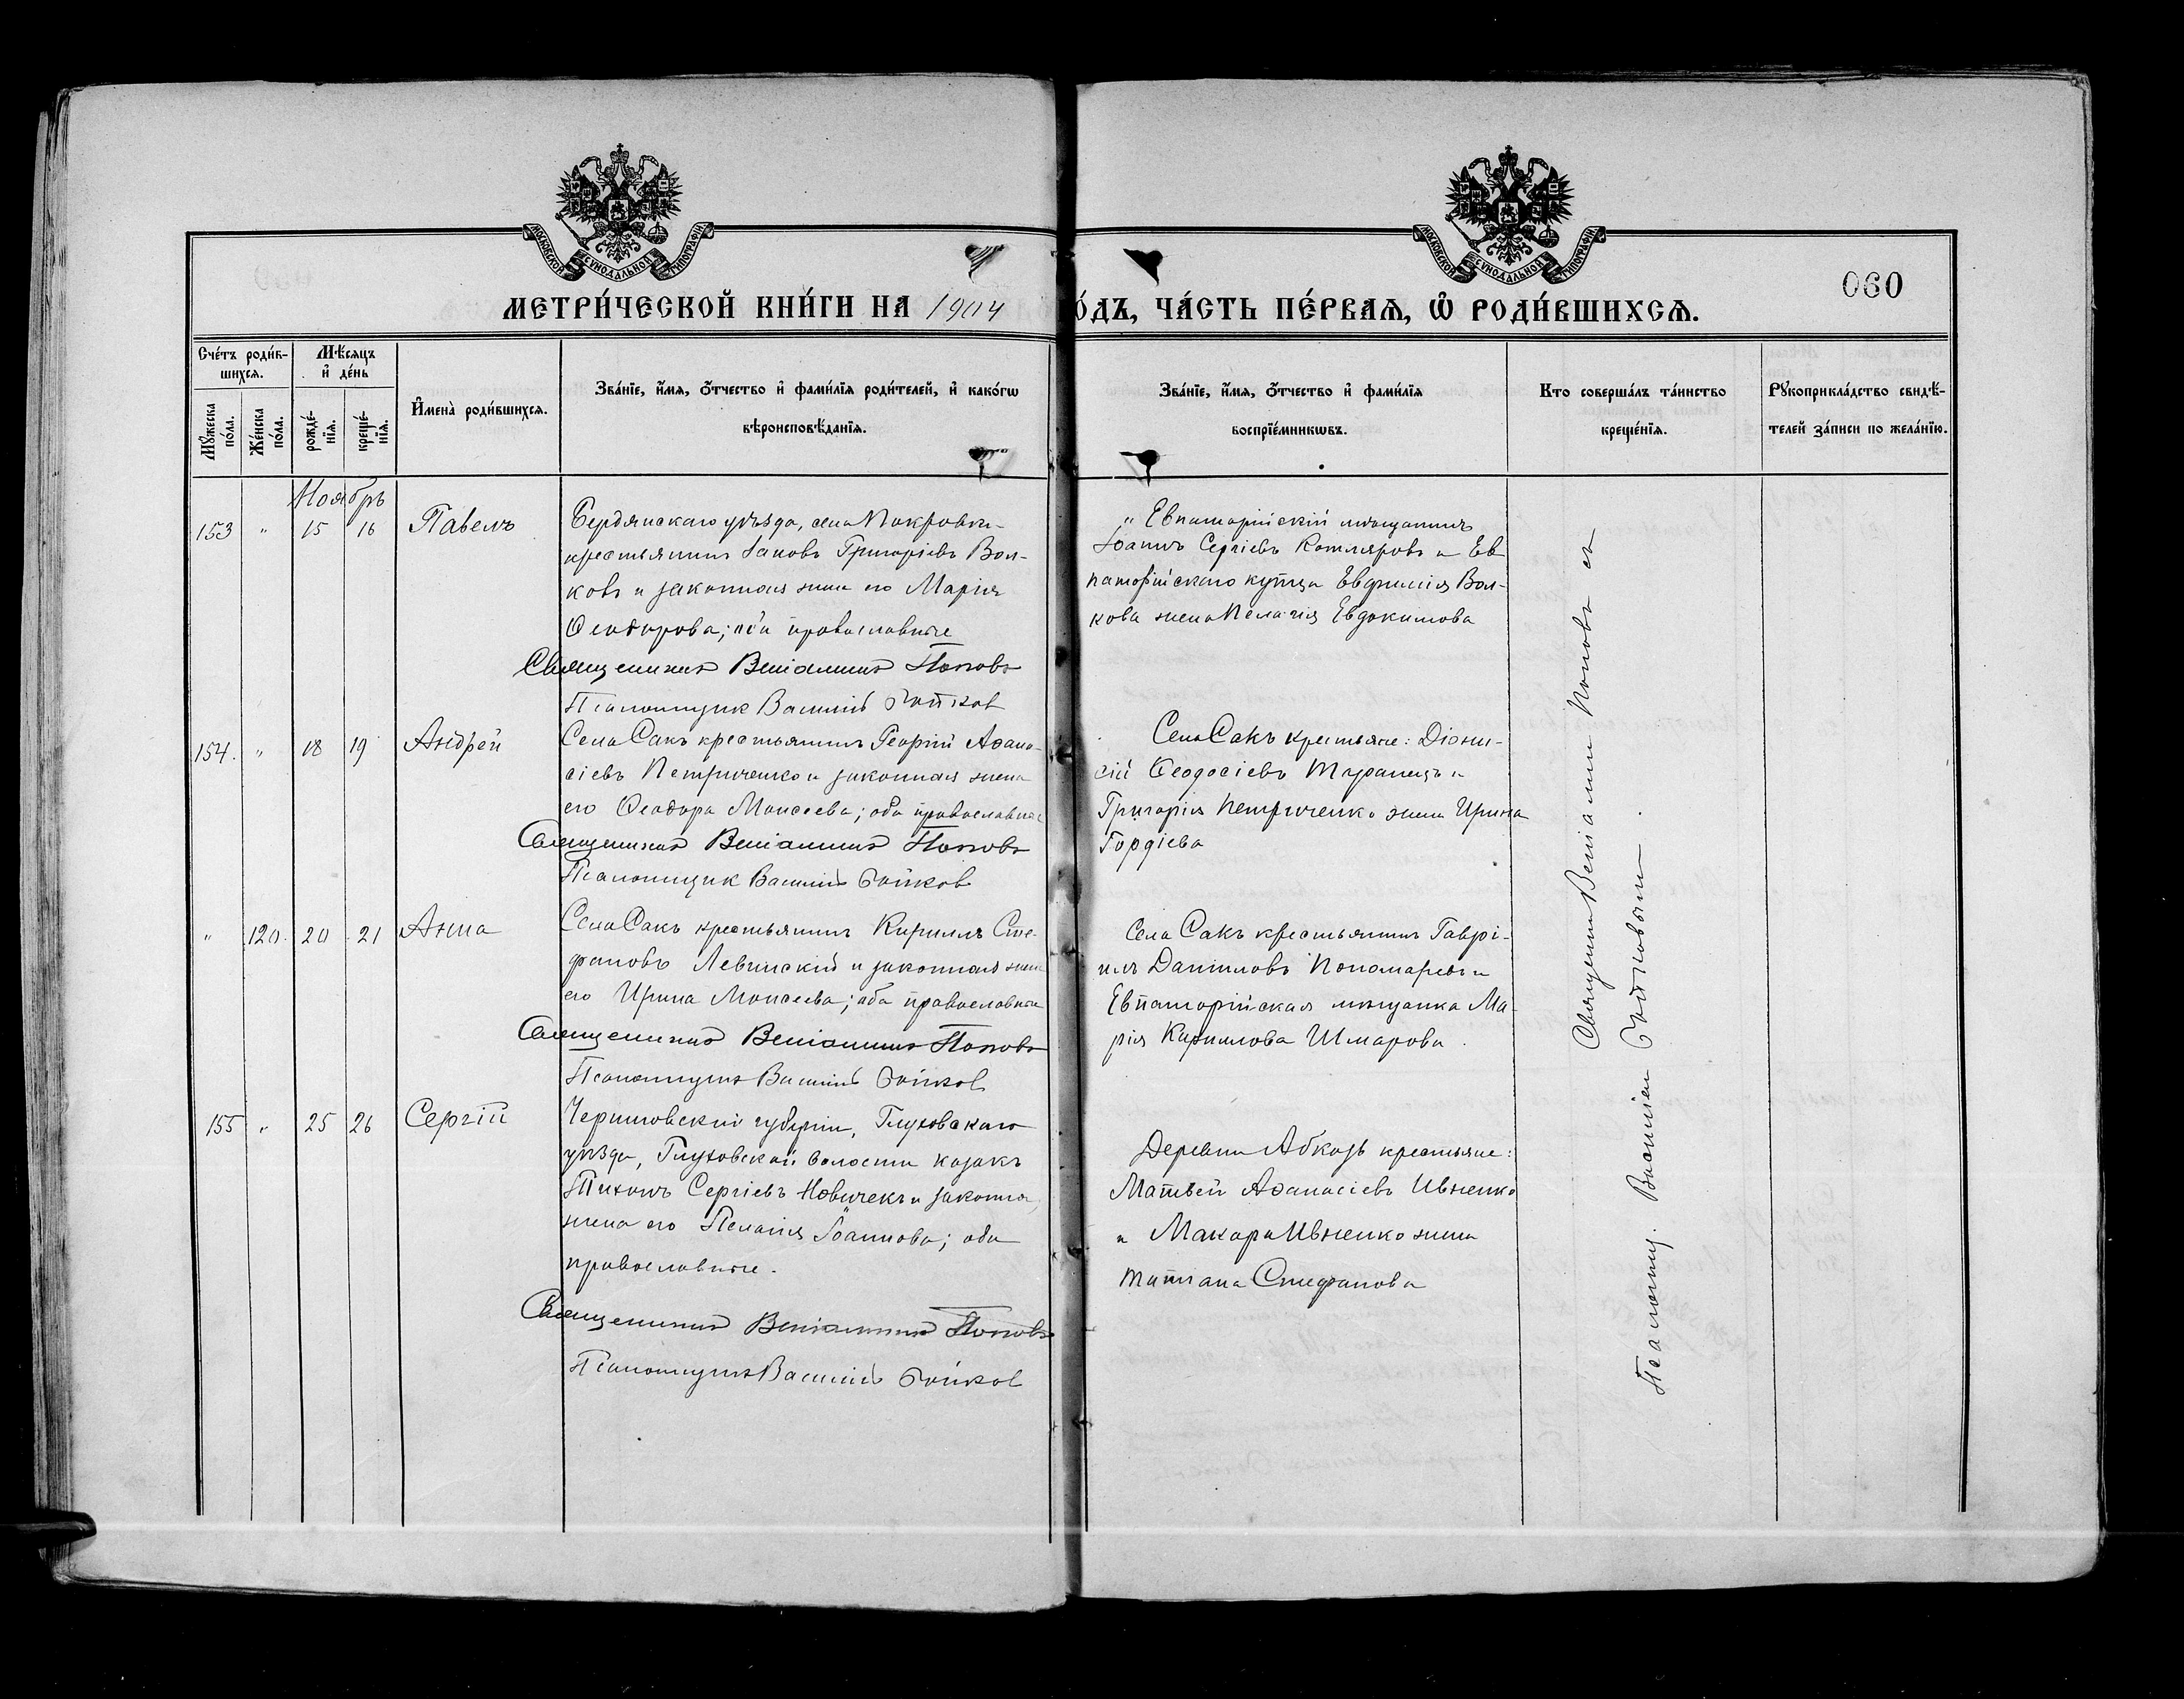 МОСКОВСКОЙ СѴНОДАЛЬНОЙ ТИПОГРАФІИ
МОСКОВСКОЙ СѴНОДАЛЬНОЙ ТИПОГРАФІИ
060
МЕТРИ́ЧЕСКОЙ КНИ́ГИ НА 1904
О́ДЪ, ЧА́СТЬ ПЕ́РВАЯ, Ѽ РОДИ́ВШИХСЯ.
Сче́тъ роди́в-
шихся.
Мѣ́сяцъ
и҆ де́нь
Мꙋ́жеска по́ла.
Же́нска по́ла.
рожде́-
нїя.
креще́-
нїя.
И҆мена̀ роди́вшихся.
Зва́нїе, и҆́мя, ѻ҆́тчество и҆ фами́лїя роди́телей, и҆ како́гѡ
вѣроисповѣ́данїя.
Зва́нїе, и҆́мя, ѻ҆́тчество и҆ фами́лїя
воспрїе́мникѡвъ.
Кто соверша́лъ та́инство
креще́нїя.
Рꙋкоприкла́дство свидѣ́-
телей за́писи по жела́нїю.
Ноябрь
153 " 15 16 Павелъ
Бердянскаго уѣзда, села Покровки-
крестьянинъ Іаковъ Григоріевъ Вол-
ковъ и законная жена его Марія
Ѳеодорова; оба православные
Священникъ Веніаминъ Поповъ
Псаломщик Василій Бойков
" Евпаторійскій мѣщанинъ
Іоаннъ Сергіевъ Котляровъ и Ев
паторійскаго купца Евфимія Вол-
кова жена Пелагія Евдокимова
154. " 18 19 Андрей
Села Сакъ крестьянинъ Георгій Аѳана-
сіевъ Петриченко и законная жена
его Ѳеодора Моисеева; оба православные
Священникъ Веніаминъ Поповъ
Псаломщик Василій Бойков
Села Сакъ крестьяне: Діони-
сій Ѳеодосіевъ Таранецъ и
Григорія Петриченко жена Ирина
Гордіева
" 120. 20 21 Анна
Села Сакъ крестьянинъ Кириллъ Сте-
фановъ Левинскій и законная жена
его Ирина Моисеева; оба православные
Священникъ Веніаминъ Поповъ
Псаломщикъ Василій Бойков
Села Сакъ крестьянинъ Гаврі-
илъ Даниловъ Пономаревъ и
Евпаторійская мѣщанка Ма-
рія Кириллова Шмарова.
155 " 25 26 Сергій
Черниговской губерніи, Глуховскаго
уѣзда, Глуховской волости козакъ
Тихонъ Сергіевъ Новичекъ и законная
жена его Пелагія Іоаннова; оба
православные.
Священникъ Веніаминъ Поповъ
Псаломщикъ Василій Бойков
Деревни Абказъ крестьяне:
Матвей Аѳанасіевъ Ивженко
и Макара Ивженко жена
Татіана Стефанова
Священн Веніамин Поповъ съ
Псаломщ. Василіем Бойковым.